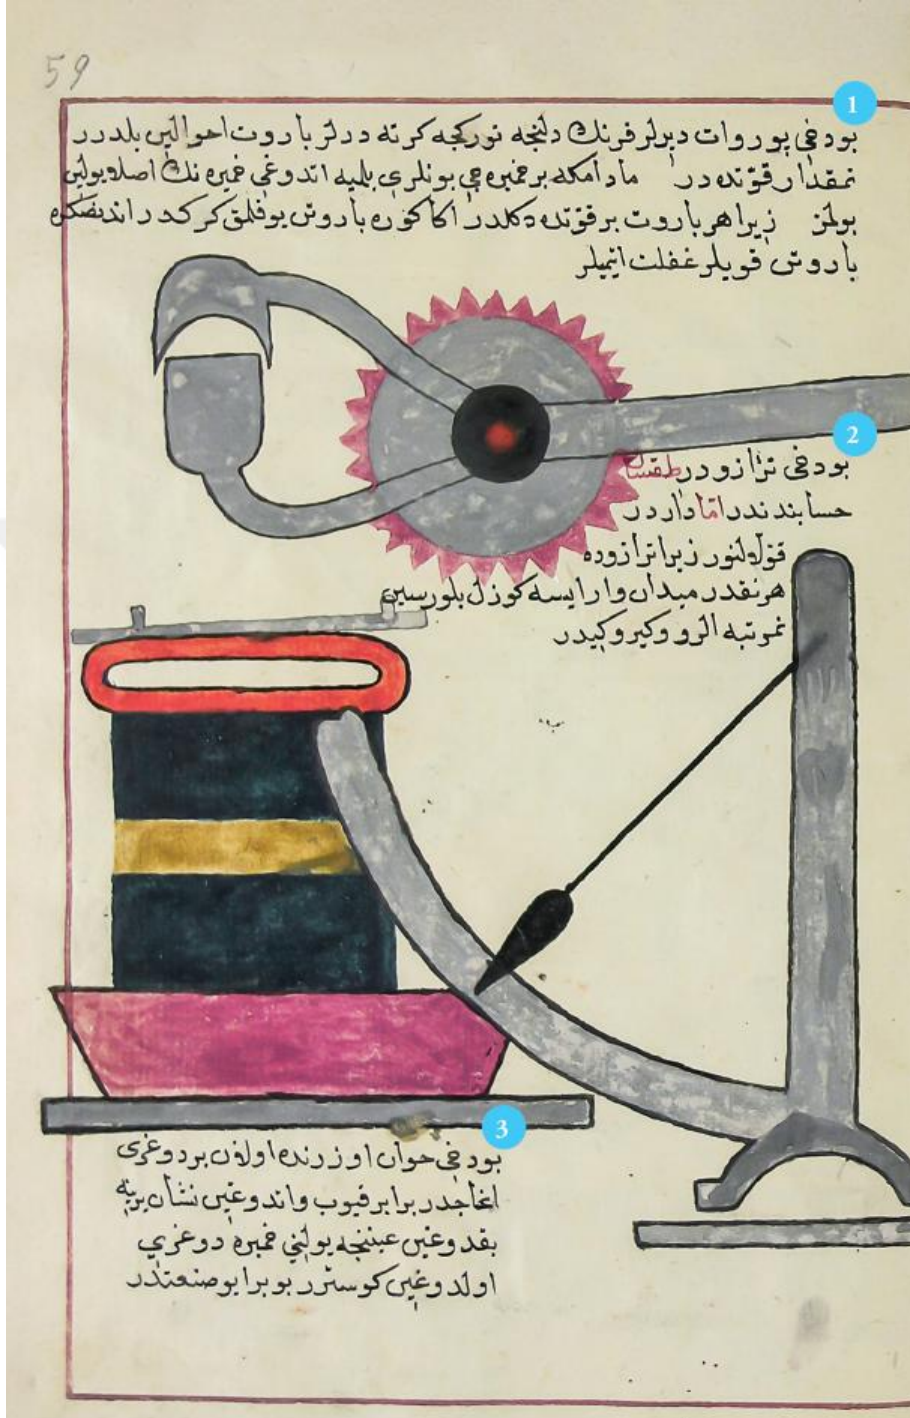 59
1
بودخی پوروات دیرلر فرنك دلنجه تورکجه کرته درلر باروت احوالین بلدرر
نمقدار قوتده در مادامکه بر خمبره جی بونلری بلمیه اتدوغی خمبره نك اصلا یولین
بولمز زیرا هر باروت بر قوتده دکلدر اکا کوره باروتی یوقلمق کرکدر اندنصکره
باروتی قویلر غفلت ایتمیلر
2
بودخی ترازودر طقسان
حسابندندر اما داردر
قوللنور زیرا ترازوده
هر نقدر میدان وار ایسه کوزل بلورسین
نمرتبه الرو وکیرو کیدر
3
بودخی حوان اوزرنده اولان بر دوغری
اغاجدر برابر قیوب واندوغین نشان یریه
بقدوغین عیننجه یولینی خمبره دوغری
اولدوغین کوسترر بو برابو صنعتدر